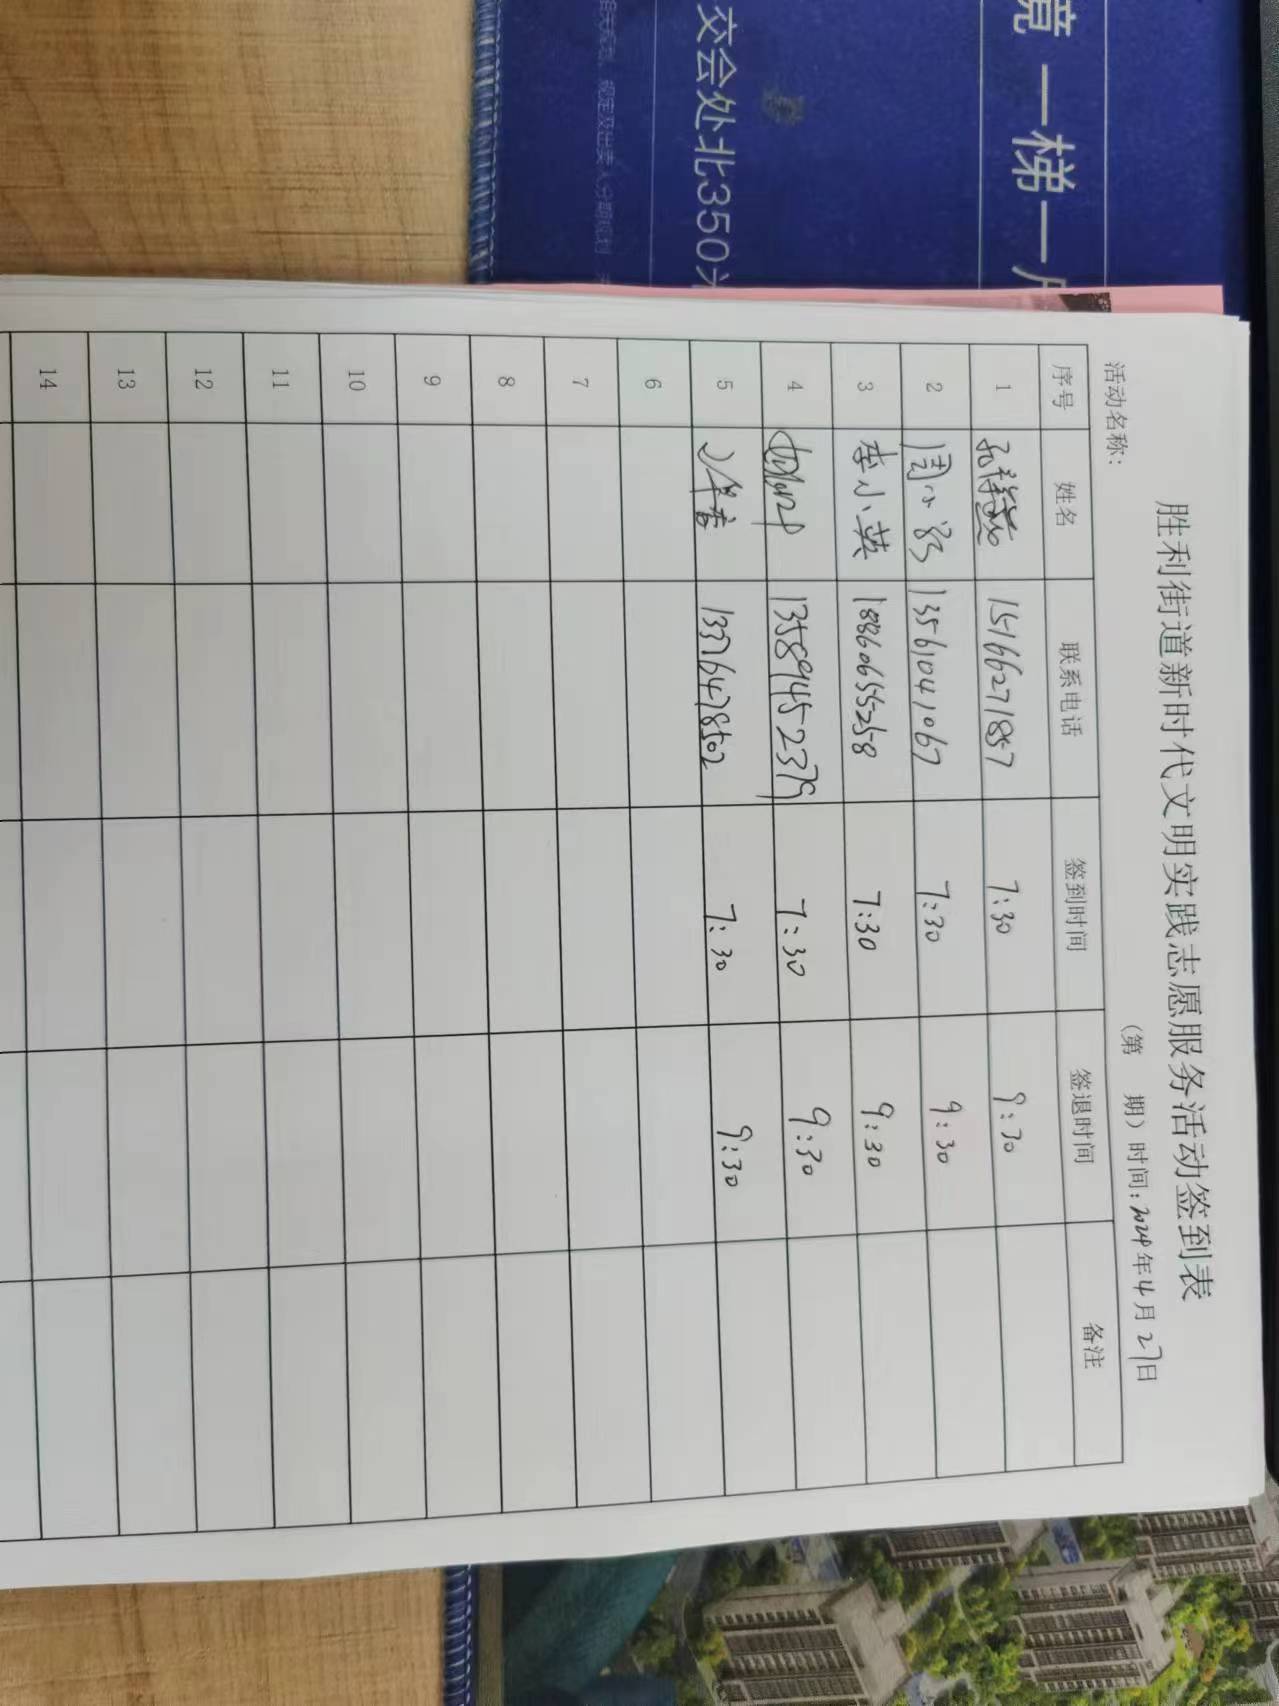 境 一梯一户
交会处北350米
胜利街道新时代文明实践志愿服务活动签到表
活动名称： （第 期）时间：2024年4月27日
序号 姓名 联系电话 签到时间 签退时间 备注
1 15166271857 7:30 9:30
2 周小 13561041067 7:30 9:30
3 李小英 18860655258 7:30 9:30
4 13589452379 7:30 9:30
5 13376478502 7:30 9:30
6
7
8
9
10
11
12
13
14